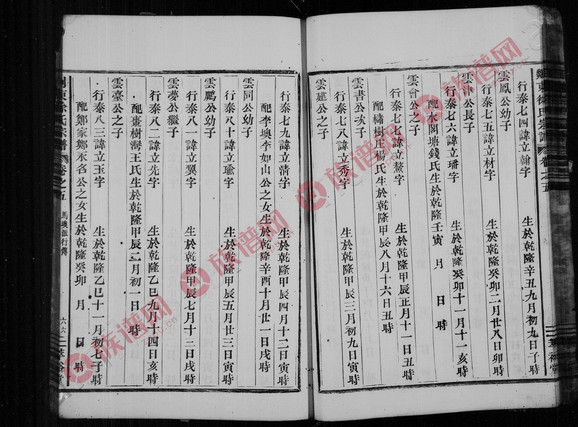 雲鳳公幼子
行泰七四諱立翰字 生於乾隆辛丑九月初九日子時
行泰七五諱立材字 生於乾隆癸卯二月廿八日卯時
雲升公長子
行泰七六諱立璠字 生於乾隆癸卯十一月十一亥時
配水閣塘錢氏生於乾隆壬寅 月 日 時
雲會公子
行泰七七諱立鰲字 生於乾隆甲辰正月十一日丑時
配樹楊氏生於乾隆甲辰八月十六日丑時
雲書公次子
行泰七八諱立秀字 生於乾隆甲辰三月初九日寅時
雲建公之子
行泰七九諱立清字 生於乾隆甲辰四月十二日寅時
配李墺李如山公之女生於乾隆辛酉十月廿一日戌時
雲同公幼子
行泰八十諱立瑜字 生於乾隆甲辰五月廿三日寅時
雲鵬公幼子
行泰八一諱立翼字 生於乾隆甲辰七月十三日戌時
雲夢公繼子
行泰八二諱立先字 生於乾隆乙巳九月十四日亥時
配棗樹灣王氏生於乾隆甲辰二月初一日 時
雲臺公之子
行泰八三諱立文字 生於乾隆乙巳十一月初七子時
配鄭家鄭永名公之女生於乾隆癸卯 月 日 時
東徐氏宗譜 卷之五 馬墺派行傳 六六
族谱网